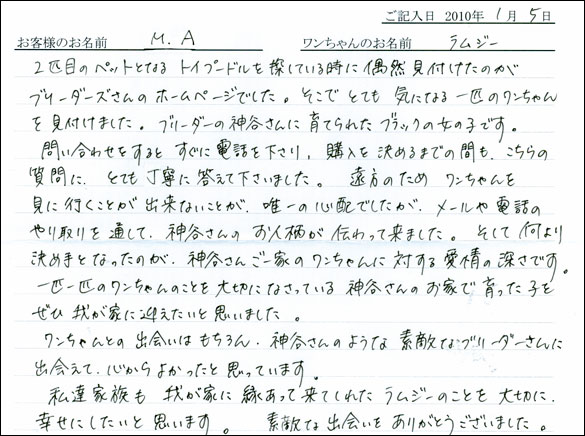 ご記入日 2010年 1月 5日
お客様のお名前 M.A ワンちゃんのお名前 ラムジー
2匹目のペットとなる トイプードルを探している時に 偶然見付けたのが
ブリーダーズさんの ホームページでした。そこで とても 気になる 一匹のワンちゃん
を 見付けました。ブリーダーの神谷さんに 育てられた ブラックの女の子です。
問い合わせをすると すぐに 電話を下さり、購入を 決めるまでの間も、こちらの
質問に、とても丁寧に 答えて下さいました。 遠方のため ワンちゃんを
見に行くことが 出来ないことが、唯一の心配でしたが、メールや電話の
やり取りを 通して、神谷さんの お人柄が 伝わって来ました。そして 何より
決め手となったのが、神谷さんご一家の ワンちゃんに 対する 愛情の深さです。
一匹一匹のワンちゃんのことを 大切になさっている 神谷さんの お家で 育った子を
ぜひ 我が家に迎えたいと 思いました。
ワンちゃんとの 出会いは もちろん、神谷さんのような 素敵なブリーダーさんに
出会えて、心からよかったと 思っています。
私達家族も 我が家に 縁あって 来てくれた ラムジーのことを 大切に、
幸せにしたいと思います。 素敵な出会いを ありがとうございました。